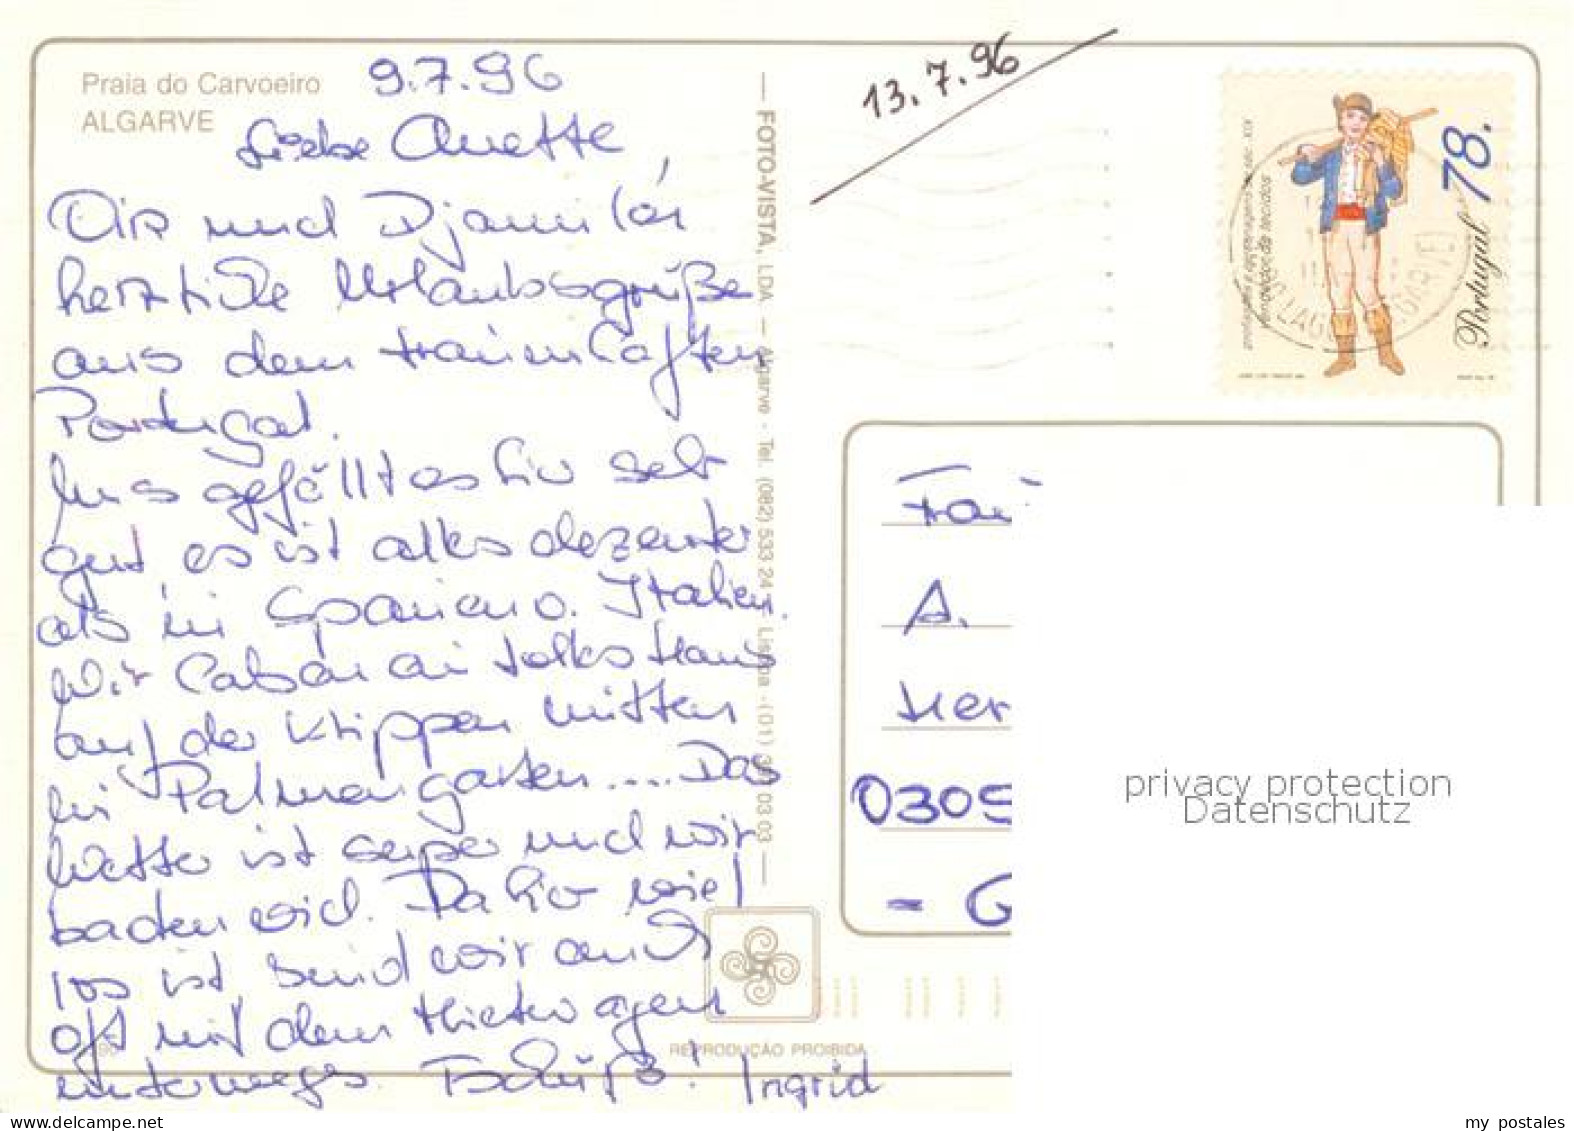 Praia do Carvoeiro
ALGARVE
9.7.96
Liebe Anette,
Dir und Djamila
herzliche Urlaubsgrüße
aus dem traumhaften
Portugal.
Uns gefällt es hier sehr
gut es ist alles dezenter
als in Spanien o. Italien.
Wir haben ein tolles Haus
auf den Klippen mitten
in Palmengarten.... Das
Wetter ist super und wir
baden viel. Da hier viel
los ist, sind wir auch
oft mit dem Mietwagen
unterwegs. Tschüß! Ingrid
— FOTO-VISTA, LDA — Algarve - Tel. (082) 533 24 - Lisboa - (01) 03 03 —
REPRODUÇÃO PROIBIDA
13.7.96
Vendedor de tecidos
78.
Portugal
A.
Her
0305
- G
privacy protection
Datenschutz
my postales